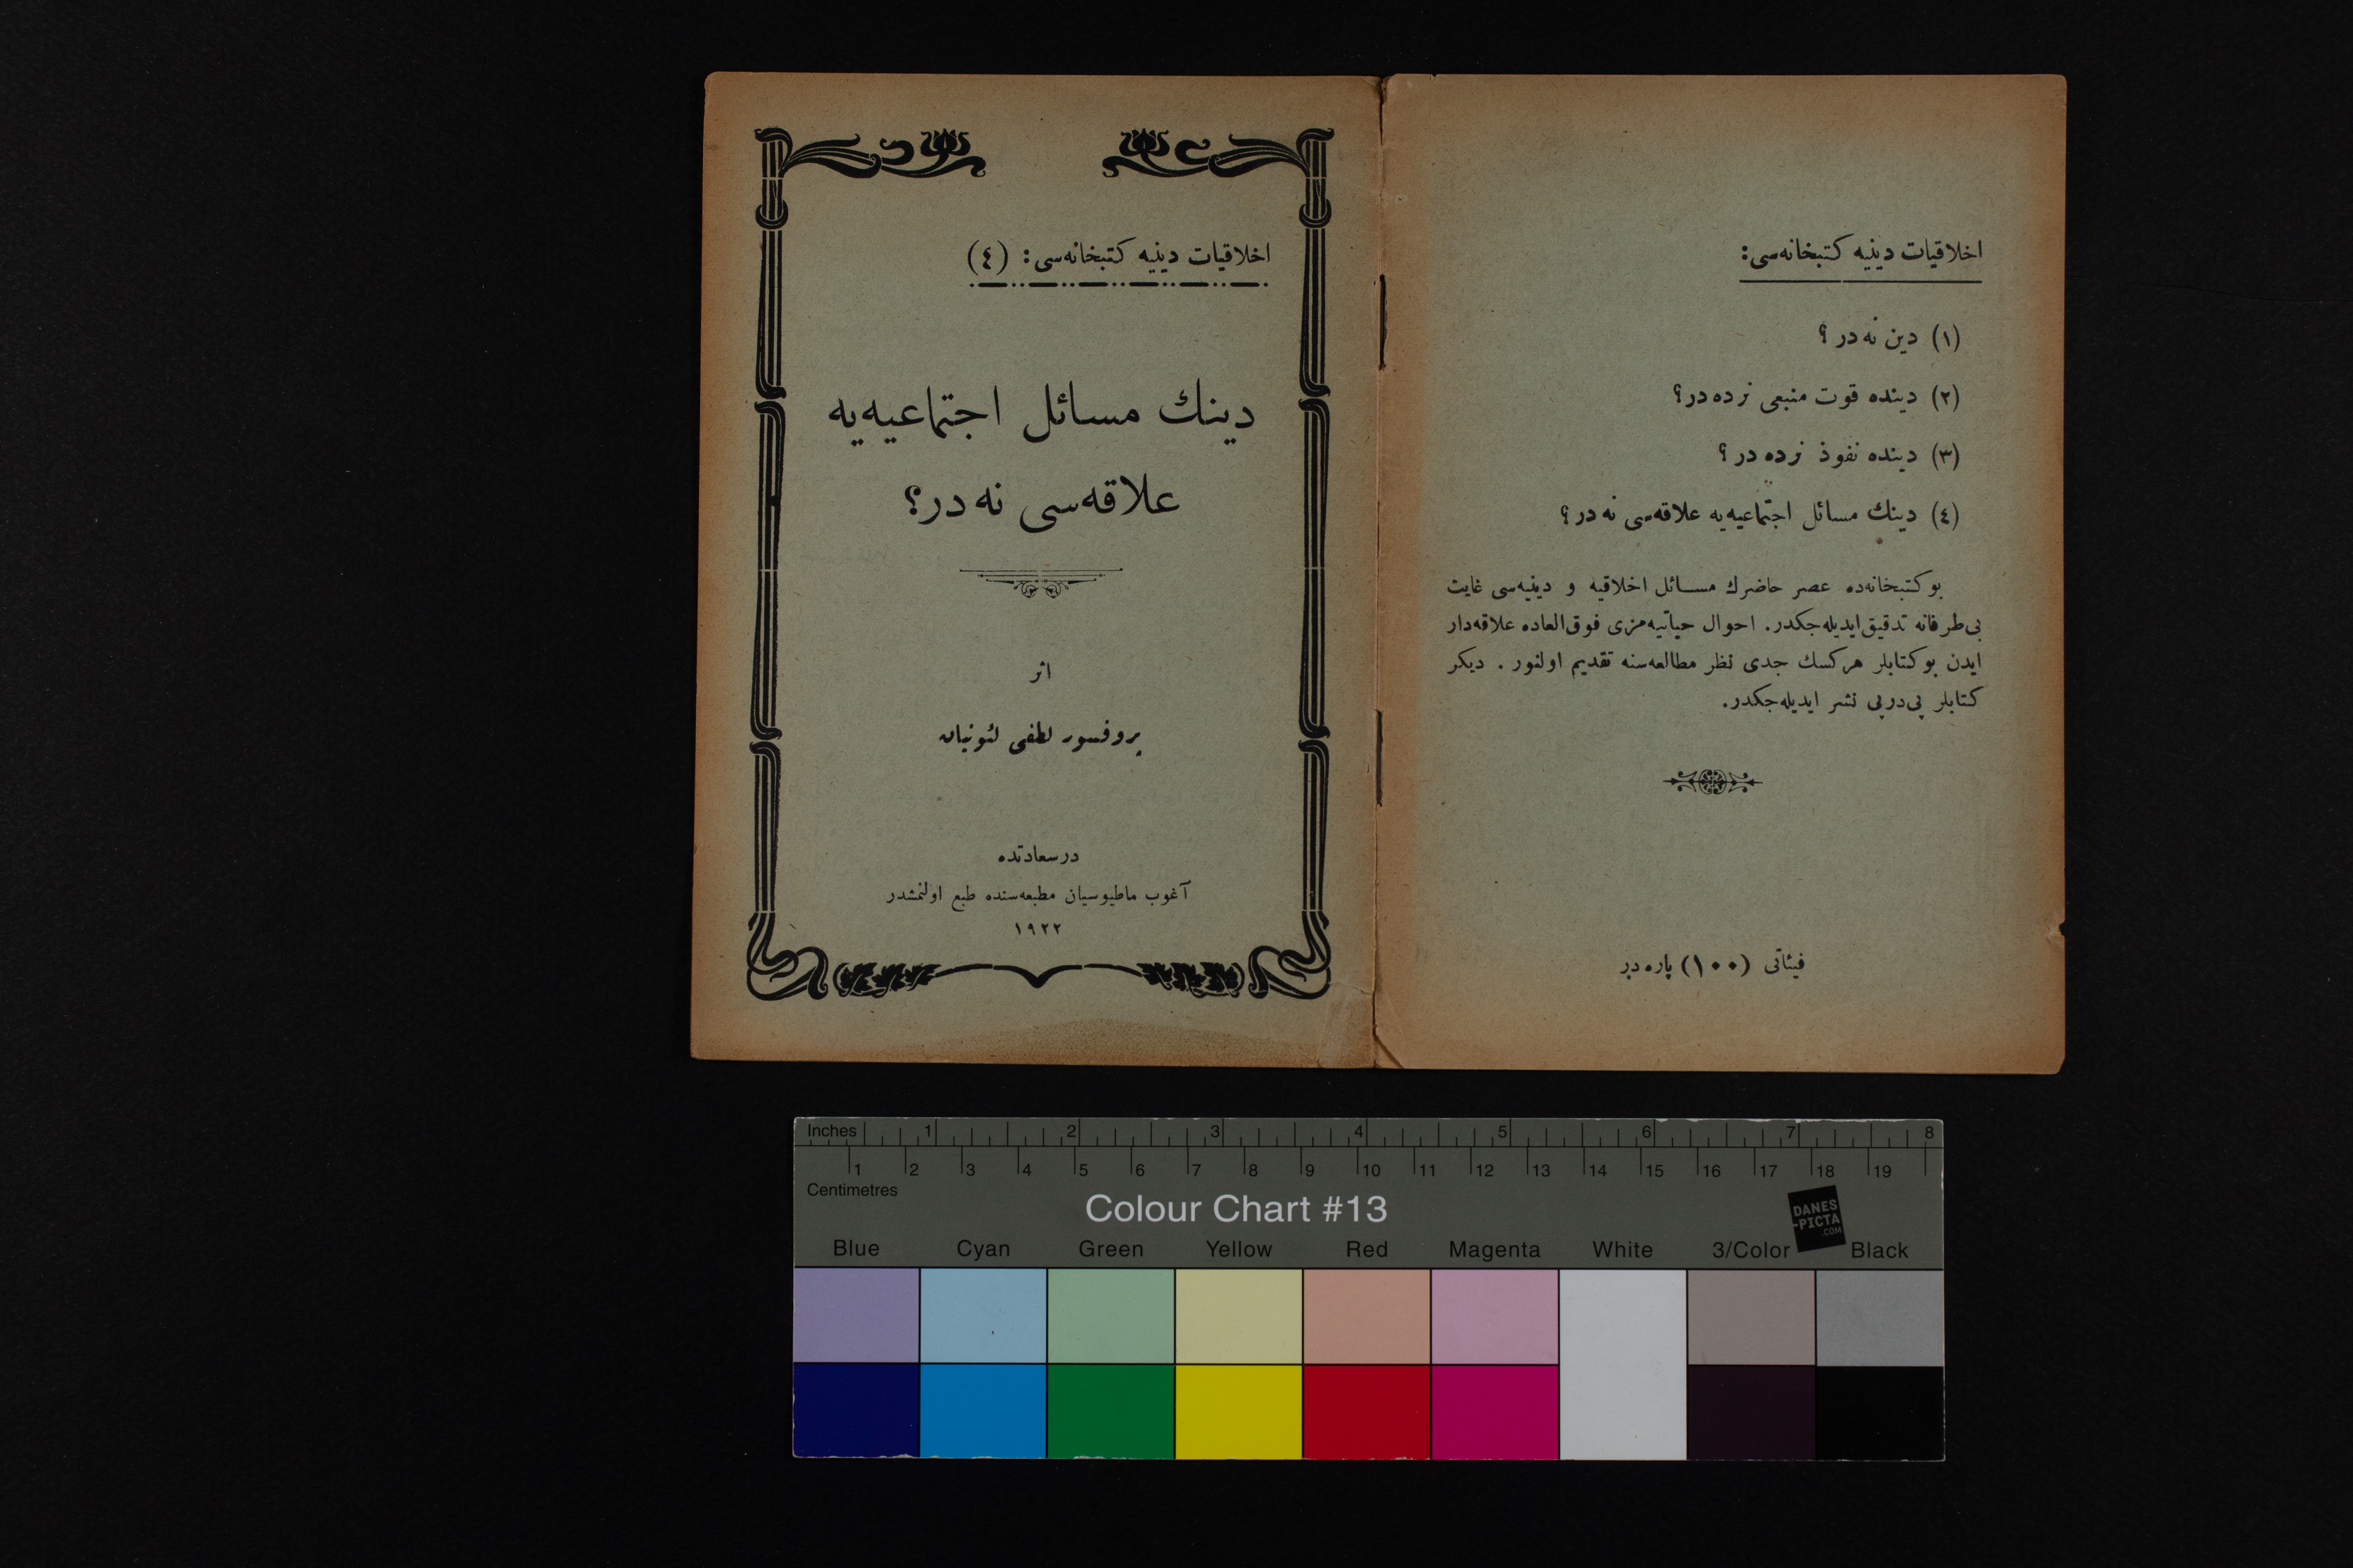 اخلاقیات دینیه کتبخانه‌سی: (٤)
دینك مسائل اجتماعیه‌یه
علاقه‌سی نه‌در؟
اثر
پروفسور لطفی لئونیان
درسعادتده
آغوب ماطیوسیان مطبعه‌سنده طبع اولنمشدر
١٩٢٢
اخلاقیات دینیه کتبخانه‌سی:
(١) دین نه‌در؟
(٢) دینده قوت منبعی نرده‌در؟
(٣) دینده نفوذ نرده‌در؟
(٤) دینك مسائل اجتماعیه‌یه علاقه‌سی نه‌در؟
بو کتبخانه‌ده عصر حاضرك مسائل اخلاقیه و دینیه‌سی غایت
بی‌طرفانه تدقیق ایدیله‌جکدر. احوال حیاتیه‌مزی فوق‌العاده علاقه‌دار
ایدن بو کتابلر هرکسك جدی نظر مطالعه‌سنه تقدیم اولنور. دیکر
کتابلر پی‌درپی نشر ایدیله‌جکدر.
فیئاتی (١٠٠) پاره‌در
Inches 1 2 3 4 5 6 7 8
1 2 3 4 5 6 7 8 9 10 11 12 13 14 15 16 17 18 19
Centimetres
Colour Chart #13
DANES
-PICTA
.COM
Blue Cyan Green Yellow Red Magenta White 3/Color Black